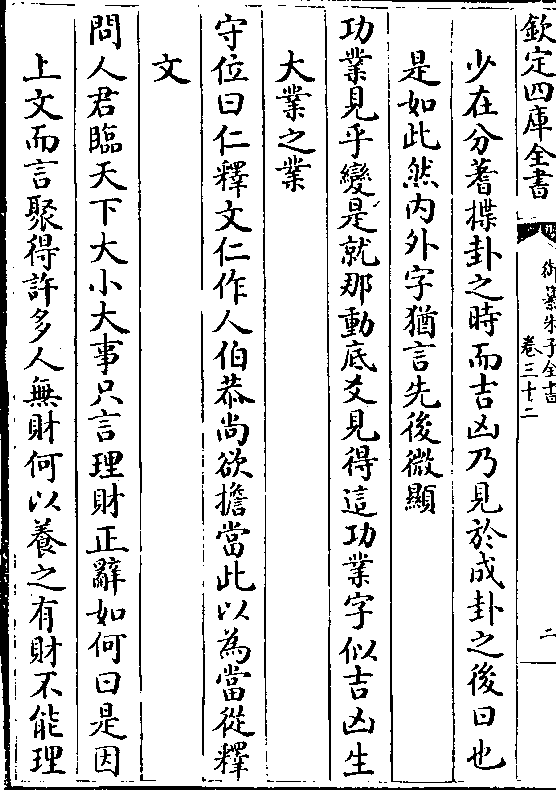 欽定四庫全書
御纂朱子全書
卷三十二
二
少在分蓍揲卦之時而吉凶乃見於成卦之後曰也
是如此然内外字猶言先後微顯
功業見乎變是就那動底爻見得這功業字似吉凶生
大業之業
守位曰仁釋文仁作人伯恭尚欲擔當此以為當從釋
文
問人君臨天下大小大事只言理財正辭如何曰是因
上文而言聚得許多人無財何以養之有財不能理